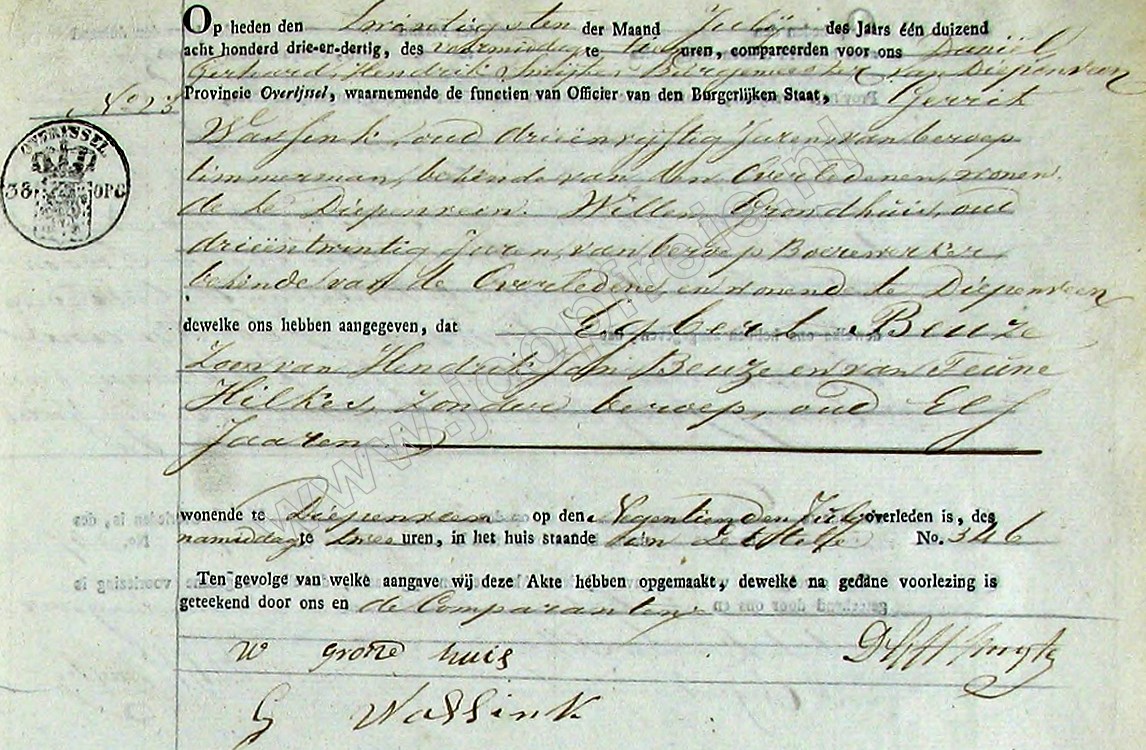 Op heden den twintigsten der Maand Julij des Jaars één duizend
acht honderd drie-en-dertig, des voormiddag te tien uren, compareerden voor ons Daniël
Gerhard Hendrik Smijter Burgemeester van Diepenveen
Provincie Overijssel, waarnemende de functien van Officier van den Burgerlijken Staat, Gerrit
No 23
OVERYSSEL
38 OPC
Wassink, oud drieënvijftig Jaren, van beroep
timmerman, bekende van den Overledenen, wonen-
de te Diepenveen. Willem Grondhuis, oud
drieëntwintig Jaren, van beroep Boerewerker,
bekende van de Overledene, en wonend te Diepenveen
dewelke ons hebben aangegeven, dat Egbert Beuze
Zoon van Hendrik Jan Beuze en van Teune
Hilkes, zonder beroep, oud Elf
Jaaren
wonende te Diepenveen op den Negentienden July overleden is, des
namiddag te twee uren, in het huis staande No. 346
Ten gevolge van welke aangave wij deze Akte hebben opgemaakt, dewelke na gedane voorlezing is
geteekend door ons en de Comparanten
W grond huis
G Wassink
www.jooptreia.nl